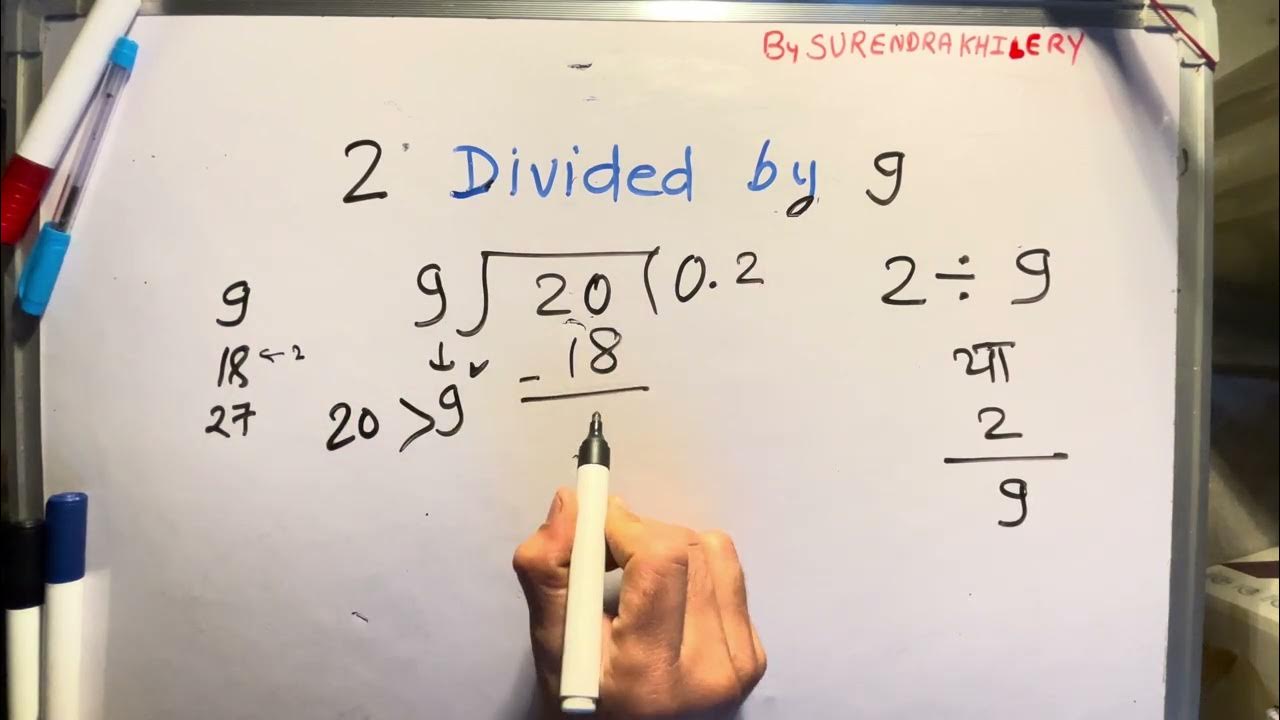 By SURENDRA KHILERY
2 Divided by 9
9
18 ← 2
27
9 ) 20 ( 0.2
- 18
↓ ✓
20 > 9
2 ÷ 9
या
2
9